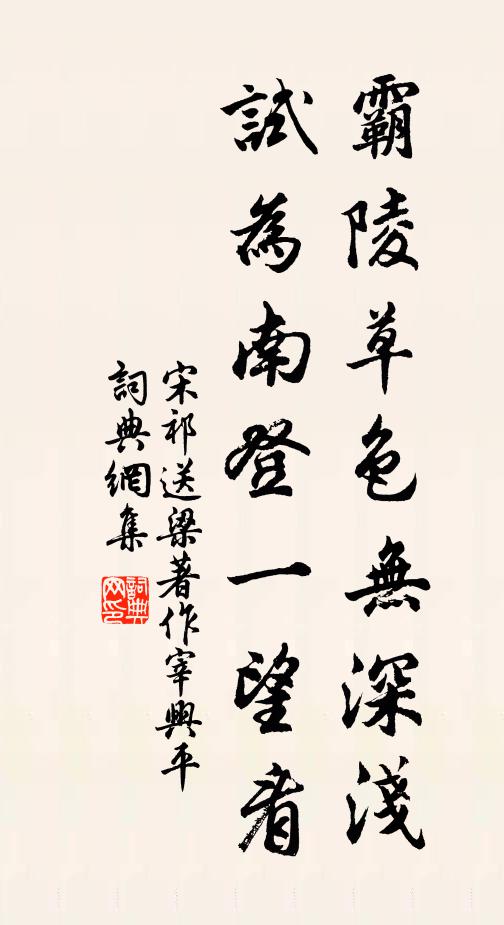 霸陵草色無深淺
試為南登一望看
宋祁送梁著作宰興平
詞典網集
詞典網印